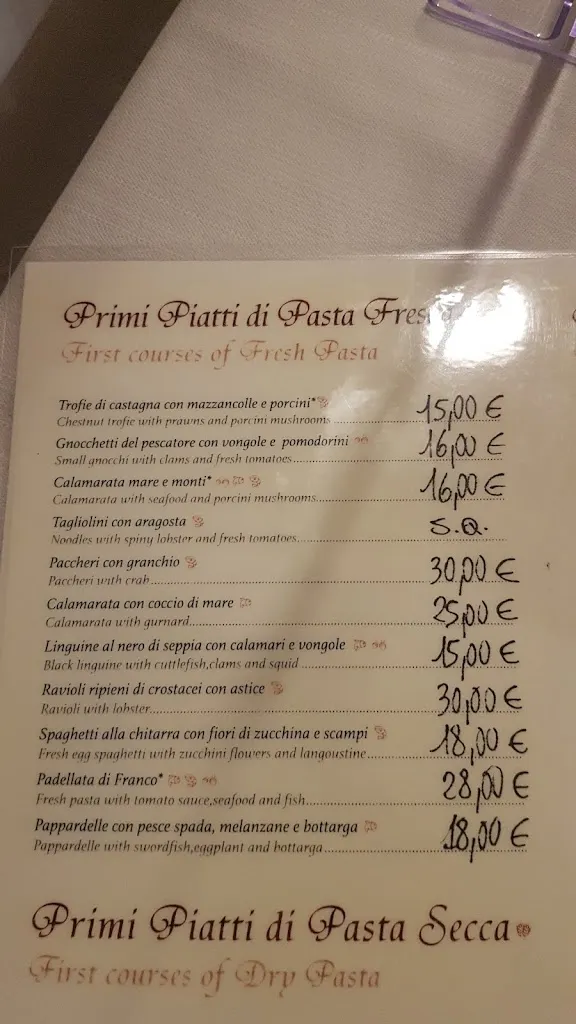 Primi Piatti di Pasta
First courses of Fresh Pasta
Trofie di castagna con mazzancolle e porcini*
Chestnut trofie with prawns and porcini mushrooms 15,00 €
Gnocchetti del pescatore con vongole e pomodorini
Small gnocchi with clams and fresh tomatoes 16,00 €
Calamarata mare e monti*
Calamarata with seafood and porcini mushrooms 16,00 €
Tagliolini con aragosta
Noodles with spiny lobster and fresh tomatoes S.Q.
Paccheri con granchio
Paccheri with crab 30,00 €
Calamarata con coccio di mare
Calamarata with gurnard 25,00 €
Linguine al nero di seppia con calamari e vongole
Black linguine with cuttlefish,clams and squid 15,00 €
Ravioli ripieni di crostacei con astice
Ravioli with lobster 30,00 €
Spaghetti alla chitarra con fiori di zucchina e scampi
Fresh egg spaghetti with zucchini flowers and langoustine 18,00 €
Padellata di Franco*
Fresh pasta with tomato sauce,seafood and fish 28,00 €
Pappardelle con pesce spada, melanzane e bottarga
Pappardelle with swordfish,eggplant and bottarga 18,00 €
Primi Piatti di Pasta Secca
First courses of Dry Pasta